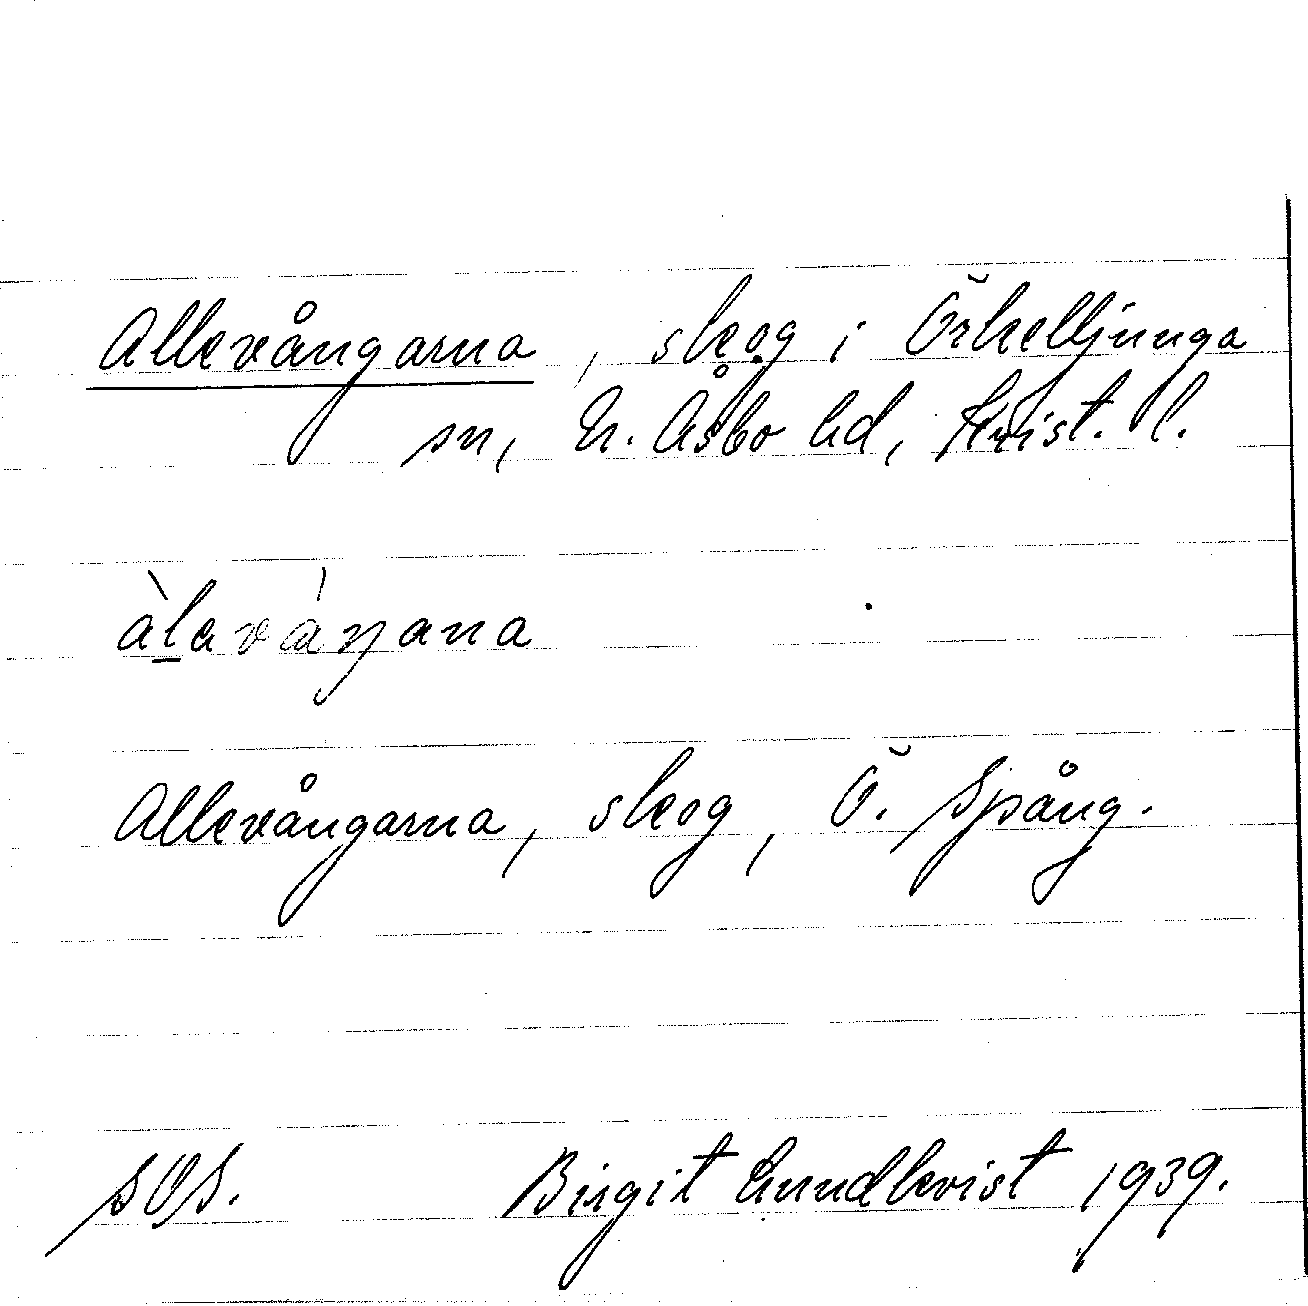 Allevångarna, skog i Örkelljunga
sn, N. Åsbo hd, Krist. l.
àlaváŋana
Allevångarna, skog, Ö. Spång.
SOS. Birgit Lundkvist 1939.